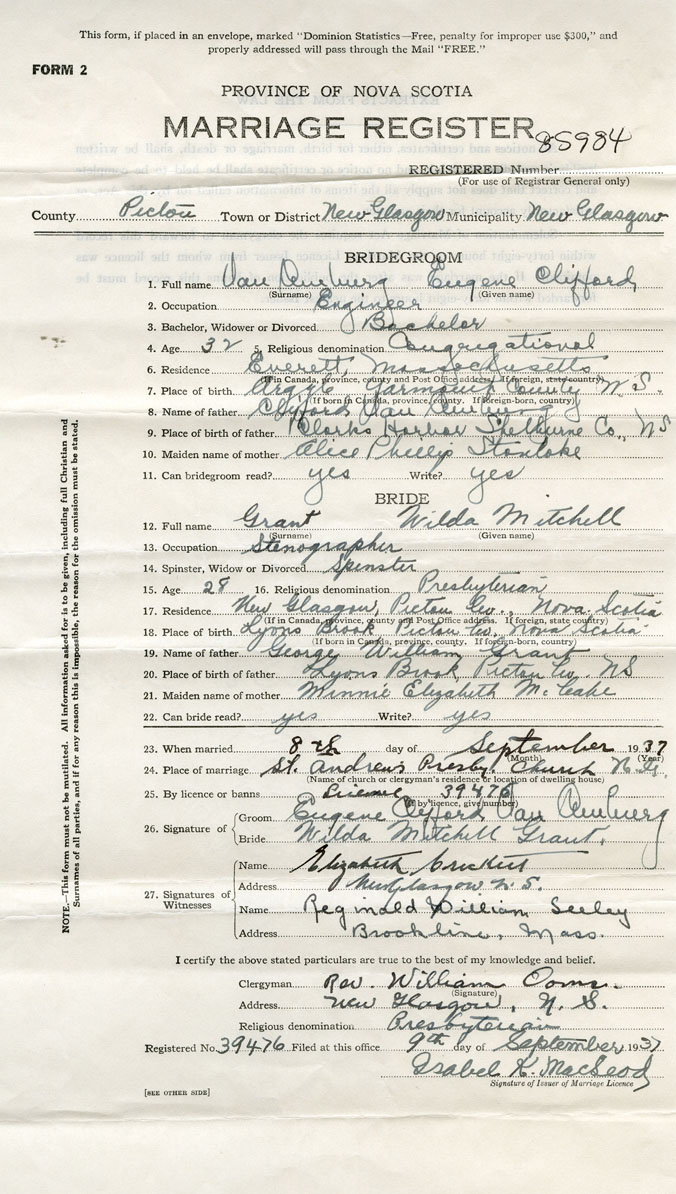 This form, if placed in an envelope, marked "Dominion Statistics—Free, penalty for improper use $300," and
properly addressed will pass through the Mail "FREE."
FORM 2
PROVINCE OF NOVA SCOTIA
MARRIAGE REGISTER
85984
REGISTERED Number
(For use of Registrar General only)
County Pictou Town or District New Glasgow Municipality New Glasgow
BRIDEGROOM
1. Full name Van Amburg Eugene Clifford
(Surname) (Given name)
2. Occupation Engineer
3. Bachelor, Widower or Divorced Bachelor
4. Age 32 5. Religious denomination Congregational
6. Residence Everett, Massachusetts
(If in Canada, province, county and Post Office address. If foreign, state country)
7. Place of birth Argyle Yarmouth County N.S.
(If born in Canada, province, county. If foreign-born, country)
8. Name of father Clifford Van Amburg
9. Place of birth of father Clarks Harbor Shelburne Co., NS
10. Maiden name of mother Alice Phillip
11. Can bridegroom read? yes Write? yes
BRIDE
12. Full name Grant Wilda Mitchell
(Surname) (Given name)
13. Occupation Stenographer
14. Spinster, Widow or Divorced Spinster
15. Age 28 16. Religious denomination Presbyterian
17. Residence New Glasgow, Pictou Co., Nova Scotia
(If in Canada, province, county and Post Office address. If foreign, state country)
18. Place of birth Lyons Brook Pictou Co, Nova Scotia
(If born in Canada, province, county. If foreign-born, country)
19. Name of father George William Grant
20. Place of birth of father Lyons Brook, Pictou Co, NS
21. Maiden name of mother Minnie Elizabeth McCabe
22. Can bride read? yes Write? yes
23. When married 8th day of September 1937
(Month) (Year)
24. Place of marriage St. Andrews Presby. Church N.G.
(Name of church or clergyman's residence or location of dwelling house)
25. By licence or banns License 39476
(If by licence, give number)
26. Signature of
Groom Eugene Clifford Van Amburg
Bride Wilda Mitchell Grant.
27. Signatures of Witnesses
Name Elizabeth Crockett
Address New Glasgow N.S.
Name Reginald William Seeley
Address Brookline, Mass.
I certify the above stated particulars are true to the best of my knowledge and belief.
Clergyman Rev. William Ooms.
(Signature)
Address New Glasgow, N.S.
Religious denomination Presbyterian
Registered No. 39476 Filed at this office 9th day of September, 1937
Isabel K. MacLeod
Signature of Issuer of Marriage Licence
[SEE OTHER SIDE]
NOTE.—This form must not be mutilated. All information asked for is to be given, including full Christian and
Surnames of all parties, and if for any reason this is impossible, the reason for the omission must be stated.